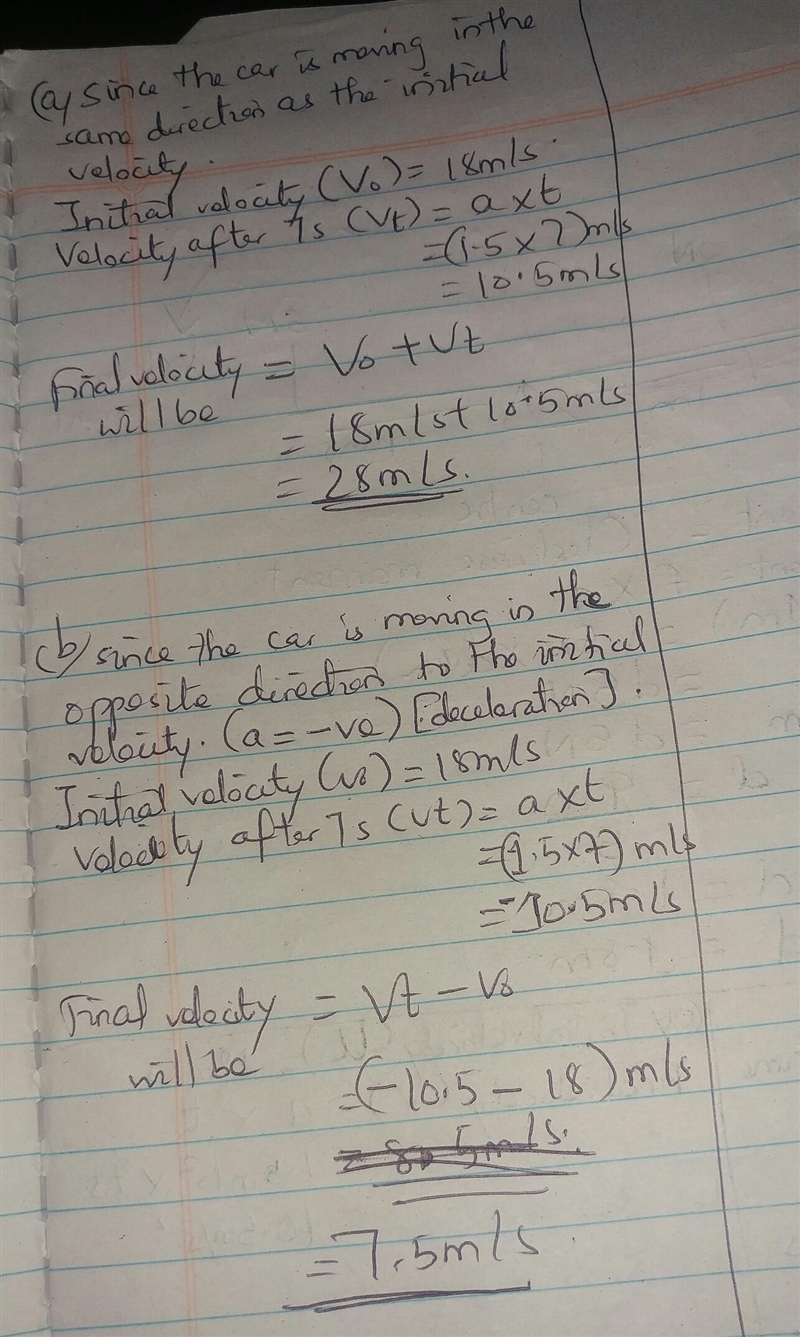 (a) Since the car is moving in the
same direction as the initial
velocity.
Initial velocity (Vo) = 18m/s.
Velocity after 7s (Vt) = a x t
= (1.5 x 7) m/s
= 10.5m/s
Final velocity = Vo + Vt
will be
= 18m/s + 10.5m/s
= 28m/s.
(b) since the car is moving in the
opposite direction to the initial
velocity. (a = -ve) [deceleration].
Initial velocity (vo) = 18m/s
Velocity after 7s (Vt) = a x t
= (1.5 x 7) m/s
= -10.5m/s
Final velocity = Vt - Vo
will be
= (-10.5 - 18) m/s
= 7.5m/s